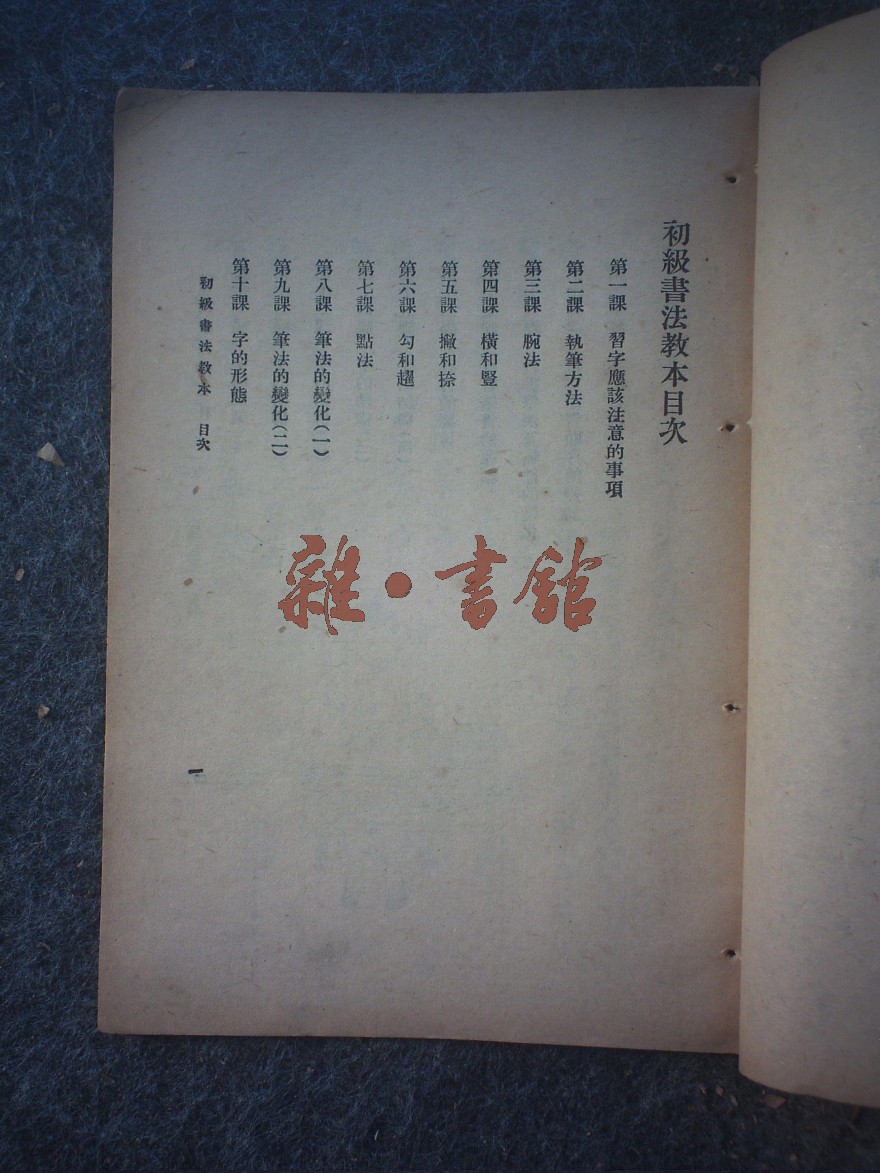 初級書法教本目次
第一課　習字應該注意的事項
第二課　執筆方法
第三課　腕法
第四課　橫和豎
第五課　撇和捺
第六課　勾和趯
第七課　點法
第八課　筆法的變化(一)
第九課　筆法的變化(二)
第十課　字的形態
初級書法教本　目次
一
雜・書館